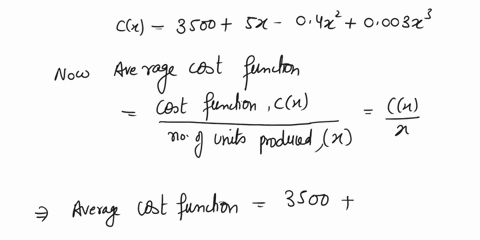 C(x) = 3500 + 5x - 0.4x² + 0.003x³
Now Average cost function
= cost function, C(x) / no. of units produced, (x) = C(x) / x
⇒ Average cost function = 3500 +